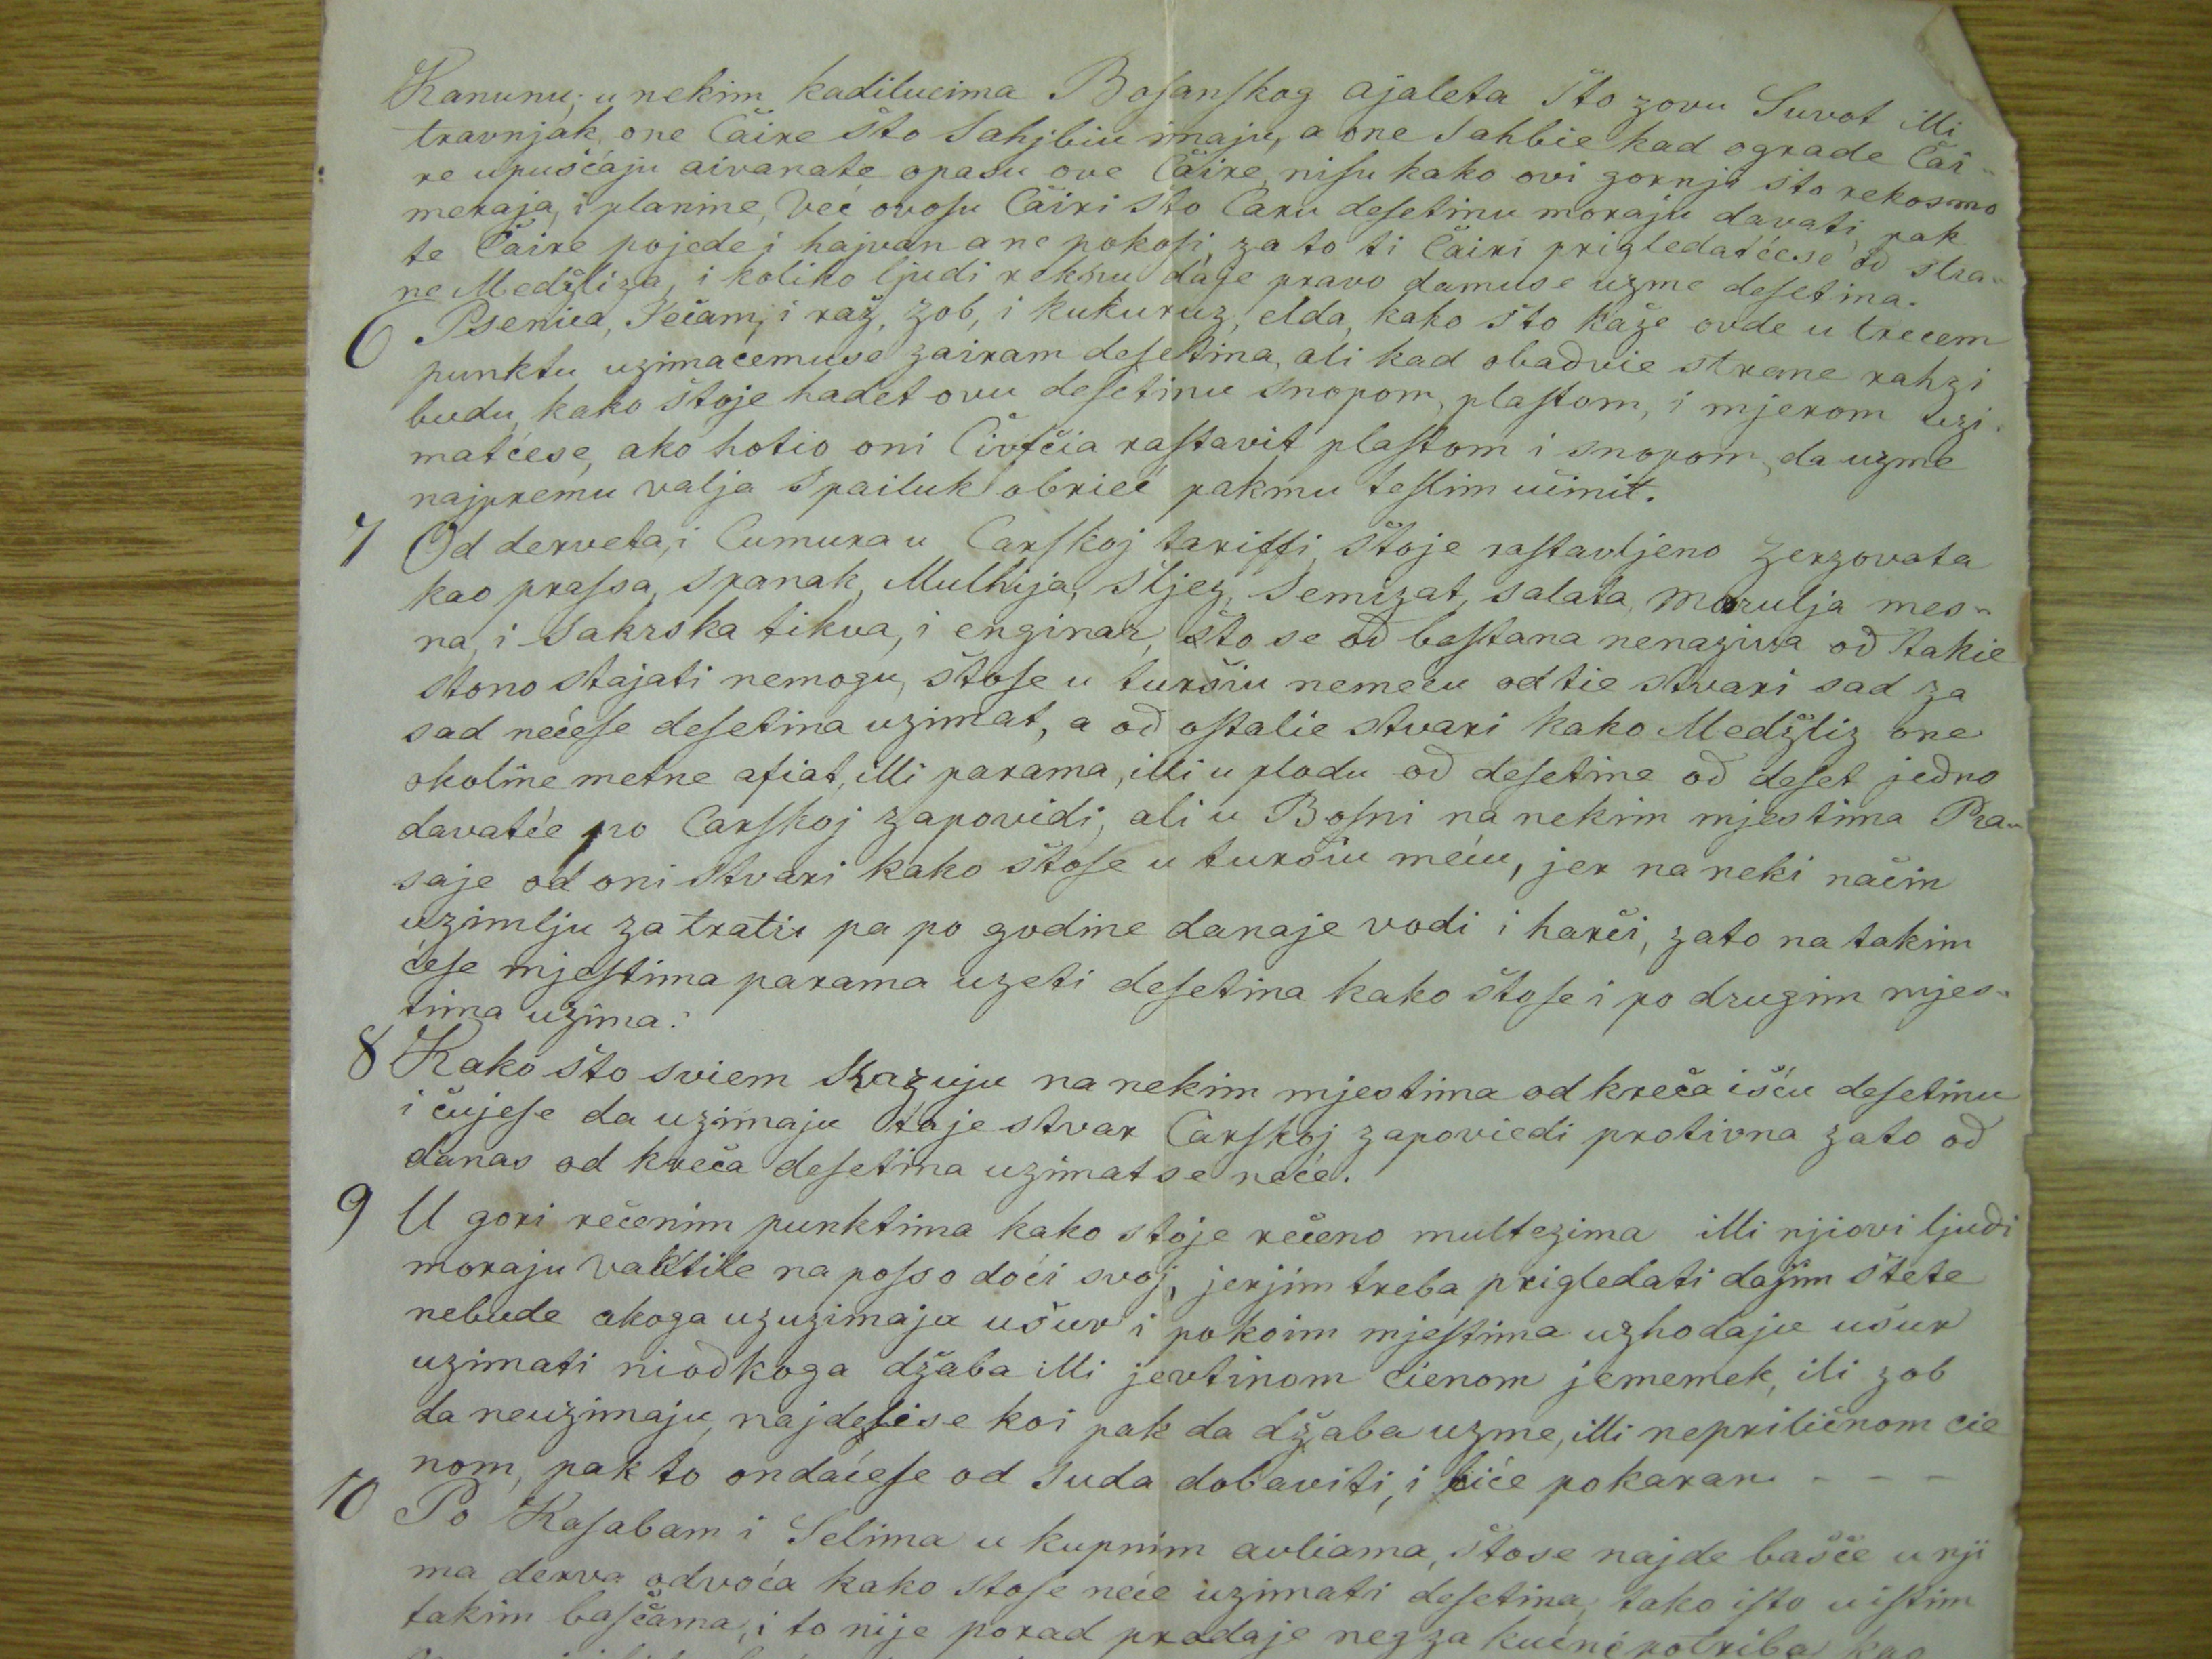 Kanunu; u nekim kadilucima Bosanskog ajaleta što zovu Suvot illi
travnjak, one Čaire što Sahjbiu imaju, a one Sahbie kad ograde Čai-
re upusćaju aivanate opasu ove Čaire, nisu kako ovi gornji što rekosmo
meraja, i planine, Već ovosu Čairi što Caru desetinu moraju davati, pak
te Čaire pojede i hajvan a ne pokosi, za to ti Čairi prigledatćese od stra-
ne Medžliza, i koliko ljudi reknu daje pravo damuse uzme desetina.
6 Psenica, Ječam, i raž, zob, i kukuruz, elda, kako što kaže ovde u trecem
punktu uzimaćemuse zairam desetina, ali kad obadvie strane rahzi
budu, kako štoje hadet ovu desetinu snopom, plastom, i mjerom uzi-
matćese, ako hotio oni Čivtčia rastavit plastom i snopom, da uzme
najpremu valja Spailuk obrieć pakmu teslim učinit.
7 Od derveta, i Čumura u Carskoj tariffi, štoje rastavljeno zerzovata
kao prassa, spanak, Mulhija, Šljez, Semizat, salata, Marulja mes-
na, i Sakrska tikva, i enginar, što se od bestana nenaziva od takie
stono stajati nemogu, štose u turšiu nemeću od tie stvari sad za
sad nećese desetina uzimat, a od ostalie stvari kako Medžliz one
okoline metne afiat, illi parama, illi u plodu od desetine od deset jedno
davatće po Carskoj zapovidi, ali u Bosni na nekim mjestima Pra-
saje od oni stvari kako štose u turšiu meću, jer na neki način
uzimlju za tratiu pa po godine danaje vodi i harči, zato na takim
ćese mjestima parama uzeti desetina kako štose i po drugim mjes-
tima uzima.
8 Kako što sviem skazuju na nekim mjestima od kreča išću desetinu
i čujese da uzimaju toje stvar Carskoj zapoviedi protivna zato od
danas od kreča desetina uzimat se neće.
9 U gori rečenim punktima kako stoje rečeno multezima illi njiovi ljudi
moraju vaktile na posso doći svoj, jerjim treba prigledati dajim štete
nebude akoga uzuzimaju ušur i pokoim mjestima uzhodaju ušur
uzimati niodkoga džaba illi jevtinom cienom jememek, ili zob
da neuzimaju, najdelise koi pak da džaba uzme, illi nepriličnom cie
nom, pak to ondaćese od Suda dobaviti, i biće pokaran. - - -
10 Po Kasabam i Selima u kupnim avliama, štose najde bašče u nji
ma derva odvoća kako stose neće uzimati desetina, tako isto u istim
takim basčama, i to nije porad prodaje neg za kućni potriba kao